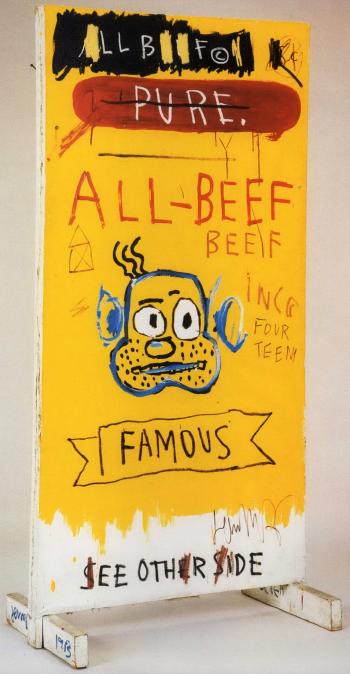 ALL BEEF©
PURE.
ALL-BEEF
BEEF
INC8
FOUR
TEEN
FAMOUS
SEE OTHER SIDE
1983